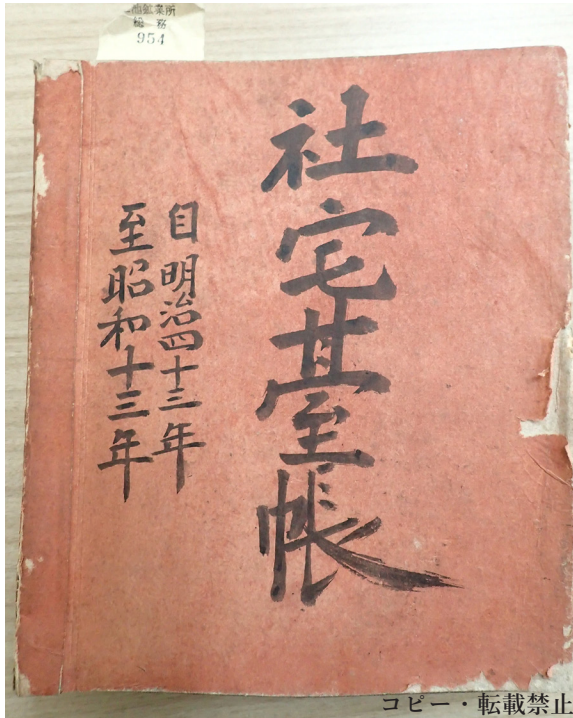 池鉱業所
総務
954
社宅臺帳
自明治四十三年
至昭和十三年
コピー・転載禁止